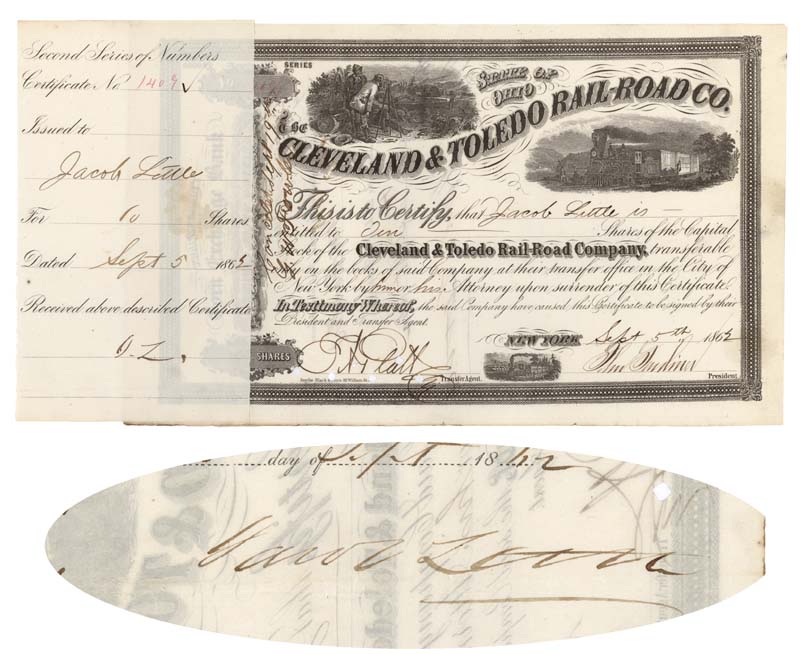 Second Series of Numbers
Certificate No 1409
Issued to
Jacob Little
For 10 Shares
Dated Sept 5 1862
Received above described Certificate
J. L.
SERIES
STATE OF OHIO
THE
CLEVELAND & TOLEDO RAIL-ROAD CO.
This is to Certify, that Jacob Little is
entitled to Ten Shares of the Capital
Stock of the Cleveland & Toledo Rail-Road Company, transferable
only on the books of said Company at their transfer office in the City of
New York by him or his Attorney upon surrender of this Certificate.
In Testimony Whereof, the said Company have caused this Certificate to be signed by their
President and Transfer Agent.
NEW YORK Sept 5th 1862
SHARES
Transfer Agent.
President
day of Sept 1862
Jacob Little